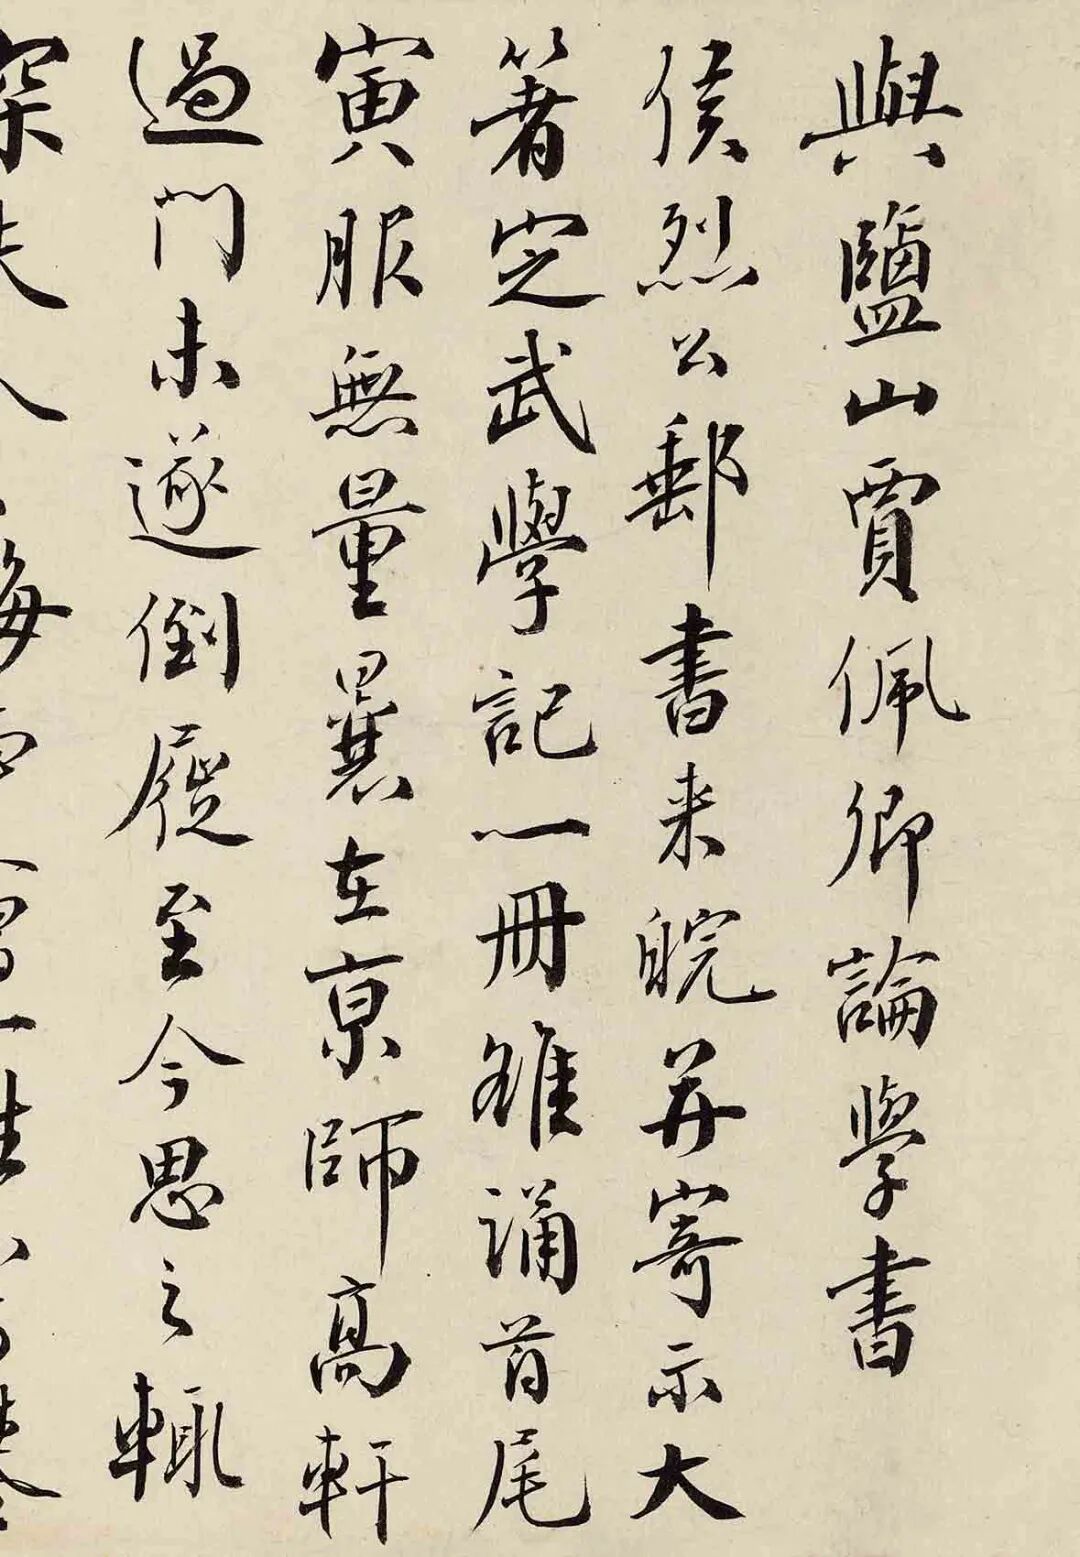 與鹽山賈佩卿論學書
侯烈公郵書来皖并寄示大
著定武學記一冊雒誦首尾
寅服無量曩在京師高軒
過門未遂倒屣至今思之輒